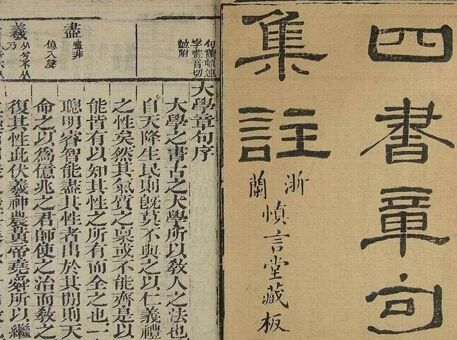 四書章句
集註
浙
蘭
慎言堂藏板
大學章句序
大學之書古之大學所以教人之法也
自天降生民則既莫不與之以仁義禮
之性矣然其氣質之稟或不能齊是以
能皆有以知其性之所有而全之也一
聰明睿智能盡其性者出於其閒則天
命之以為億兆之君師使之治而教之
復其性此伏羲神農黃帝堯舜所以繼
盡
羲